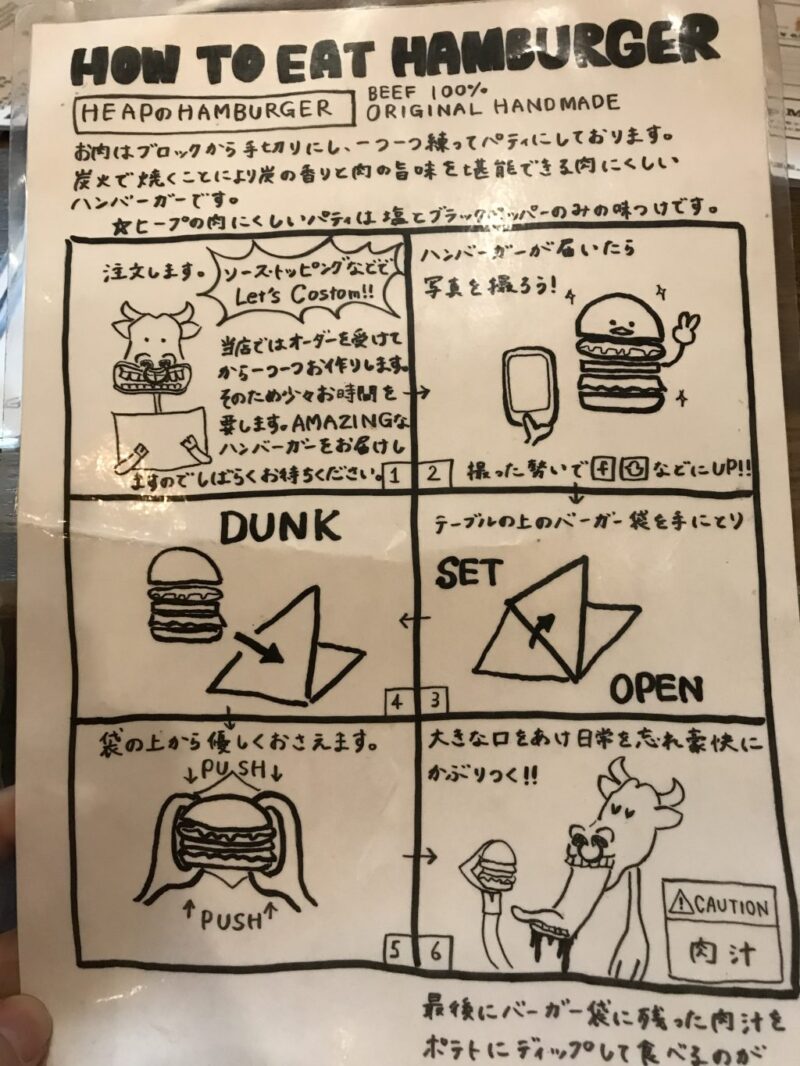 HOW TO EAT HAMBURGER
HEAPのHAMBURGER
BEEF 100%
ORIGINAL HANDMADE
お肉はブロックから手切りにし、一つ一つ練ってパティにしております。
炭火で焼くことにより炭の香りと肉の旨味を堪能できる肉にくしい
ハンバーガーです。
☆ヒープの肉にくしいパティは塩とブラックペッパーのみの味つけです。
注文します。
ソース・トッピングなどで
Let's Costom!!
当店ではオーダーを受けて
から一つ一つお作りします。
そのため少々お時間を
要します。AMAZINGな
ハンバーガーをお届けし
ますのでしばらくお待ちください。
1
ハンバーガーが届いたら
写真を撮ろう!
2
撮った勢いで f などにUP!!
テーブルの上のバーガー袋を手にとり
SET
OPEN
3
DUNK
4
袋の上から優しくおさえます。
↓PUSH↓
↑PUSH↑
5
大きな口をあけ日常を忘れ豪快に
かぶりつく!!
⚠CAUTION
肉汁
6
最後にバーガー袋に残った肉汁を
ポテトにディップして食べるのが